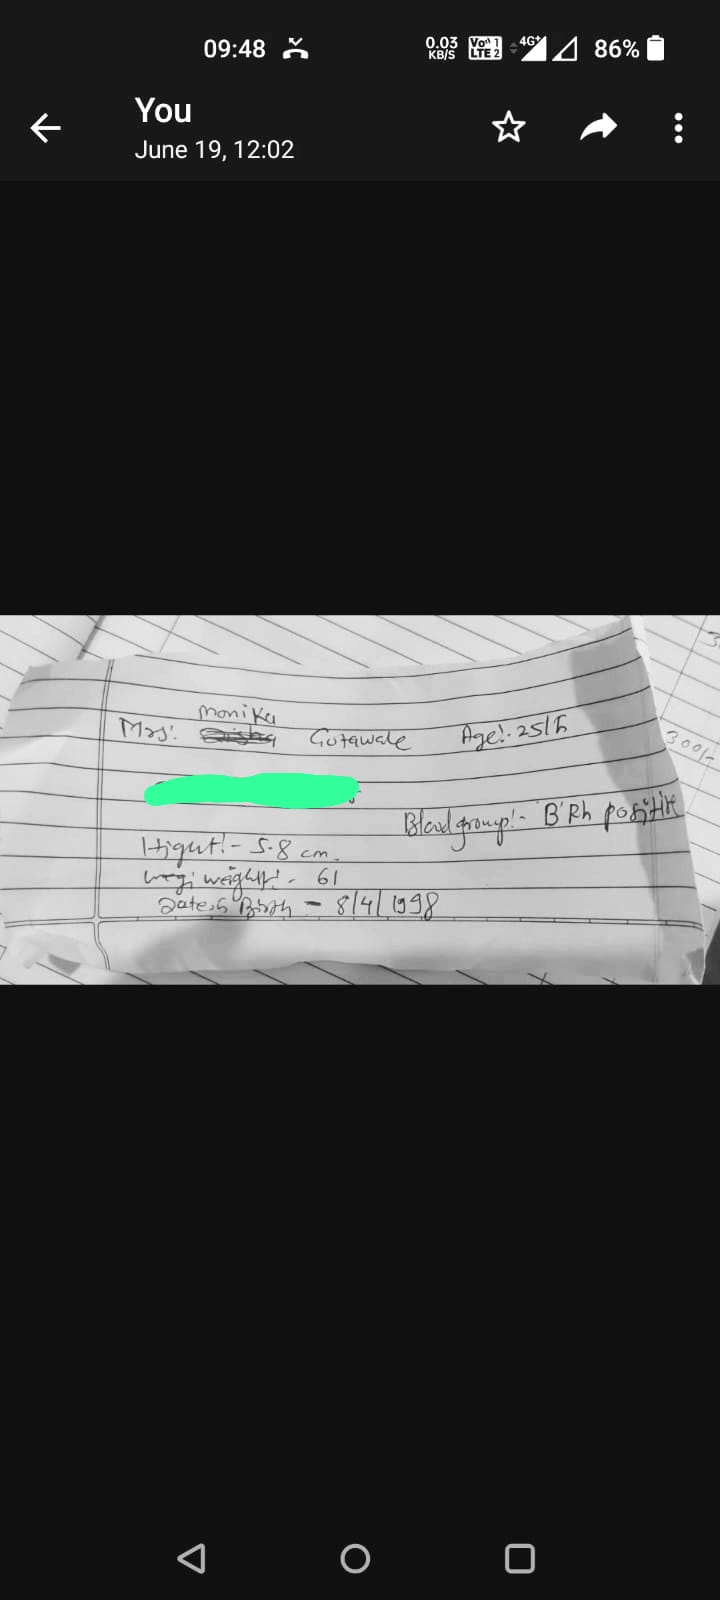 09:48
0.03 KB/S Vo 1 LTE 2 4G+ 86%
You
June 19, 12:02
monika
Mrs: Gutawale Age!. 25/F
300/-
Blood group!- 'B' Rh positive
Hignt!- 5.8 cm.
weight!- 61
Date of Birth - 8/4/1998